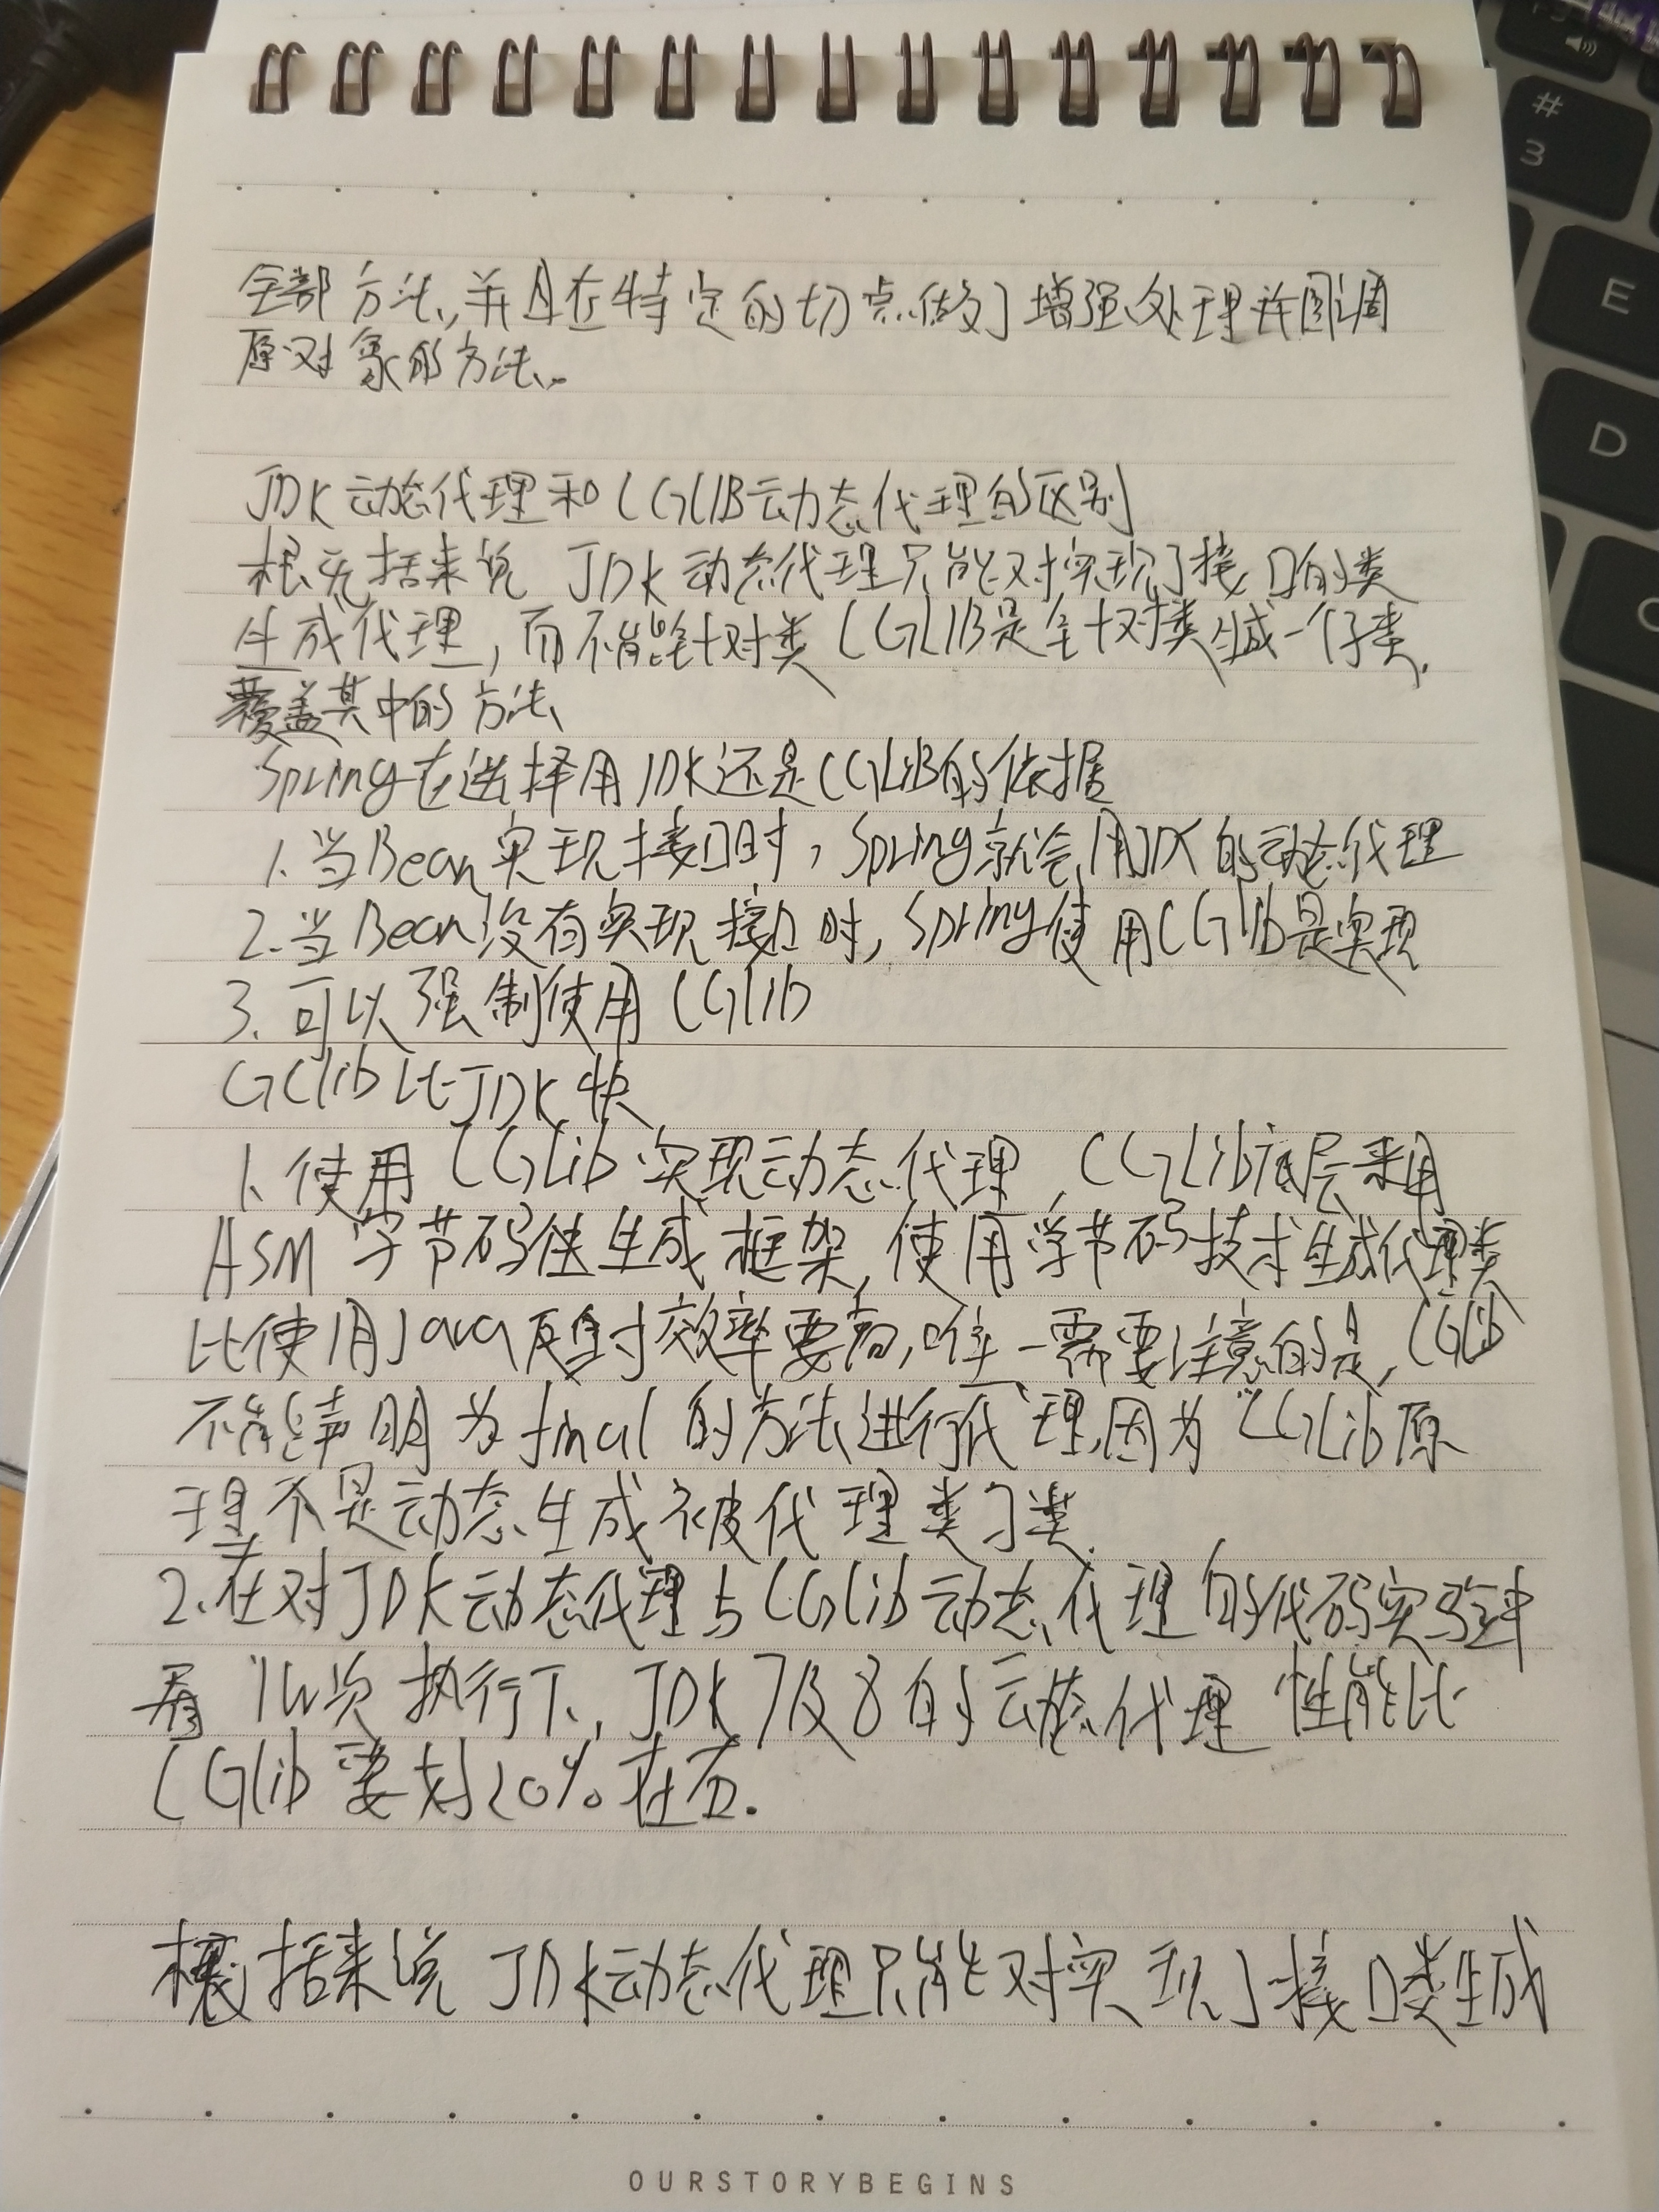 全部方法,并且在特定的切点做了增强处理并回调
原对象的方法。
JDK动态代理和CGLIB动态代理的区别
概括来说 JDK动态代理只能对实现了接口的类
生成代理,而不能针对类 CGLIB是针对类生成一个子类,
覆盖其中的方法
Spring在选择用JDK还是CGLIB的依据
1.当Bean实现接口时,Spring就会用JDK的动态代理
2.当Bean没有实现接口时,Spring使用CGlib是实现
3.可以强制使用CGlib
GClib比JDK快
1、使用CGLib实现动态代理,CGLib底层采用
ASM字节码生成框架,使用字节码技术生成代理类
比使用Java反射效率要高,唯一需要注意的是,CGLib
不能声明为final的方法进行代理,因为CGLib原
理不是动态生成被代理类子类.
2.在对JDK动态代理与CGlib动态代理的代码实验中
看 1W次执行下,JDK7及8的动态代理性能比
CGlib要好20%左右.
概括来说 JDK动态代理只能对实现了接口类生成
OURSTORYBEGINS
#
3
E
D
C